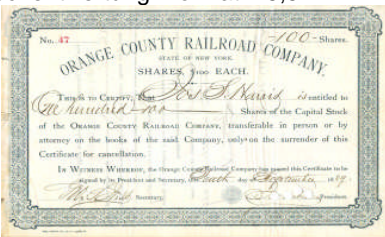 No. 47 -100- Shares.
ORANGE COUNTY RAILROAD COMPANY.
STATE OF NEW YORK.
SHARES, $100 EACH.
THIS IS TO CERTIFY, that Harris is entitled to
One hundred Shares of the Capital Stock
of the ORANGE COUNTY RAILROAD COMPANY, transferable in person or by
attorney on the books of the said Company, only on the surrender of this
Certificate for cancellation.
IN WITNESS WHEREOF, the Orange County Railroad Company has caused this Certificate to be
signed by its President and Secretary, this day of September 1889.
Secretary. President.